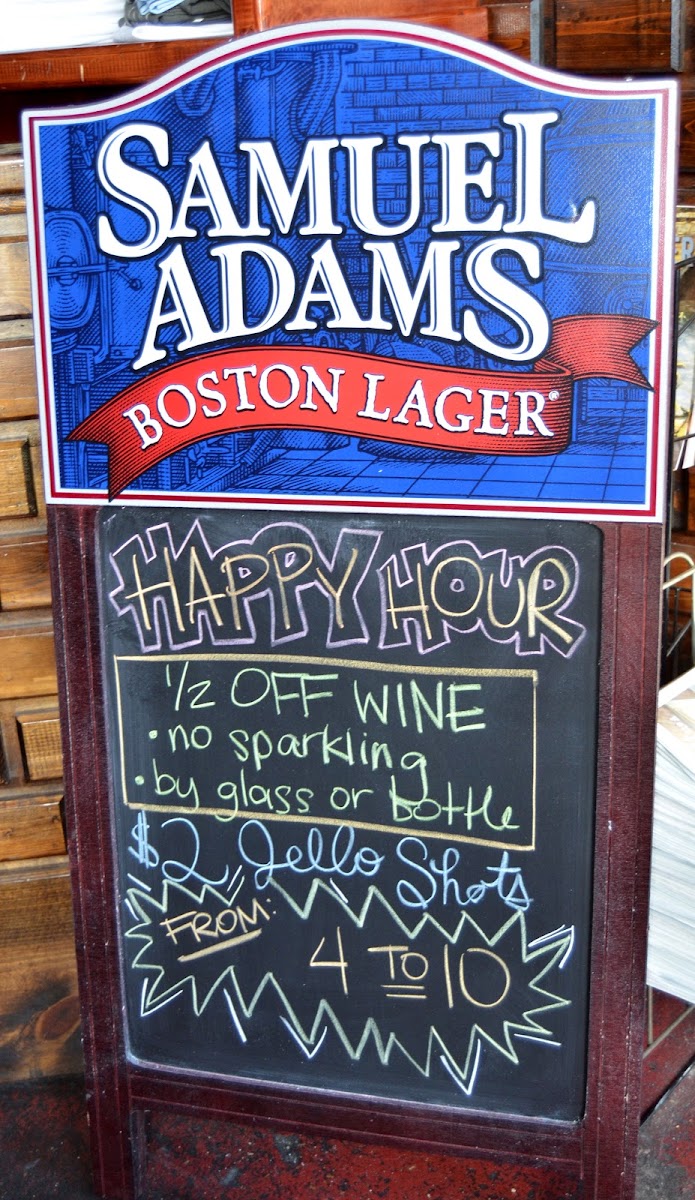 SAMUEL
ADAMS
BOSTON LAGER®
HAPPY HOUR
1/2 OFF WINE
• no sparkling
• by glass or bottle
$2 Jello Shots
FROM:
4 TO 10